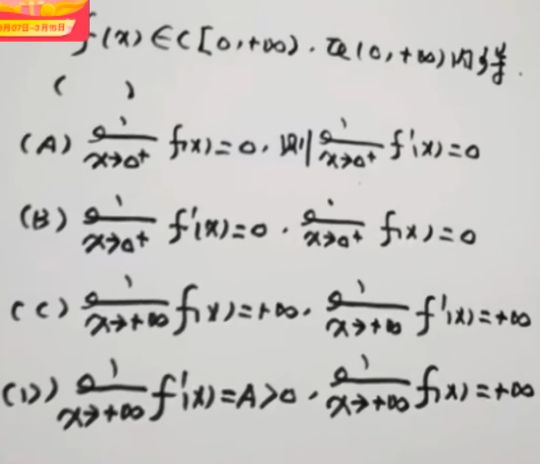 8月07日-3月16日
f(x)∈C[0,+∞).在(0,+∞)内可导.
(   )
(A) lim x→0⁺ f(x)=0,则 lim x→0⁺ f'(x)=0
(B) lim x→0⁺ f'(x)=0. lim x→0⁺ f(x)=0
(C) lim x→+∞ f(x)=+∞. lim x→+∞ f'(x)=+∞
(D) lim x→+∞ f'(x)=A>0. lim x→+∞ f(x)=+∞